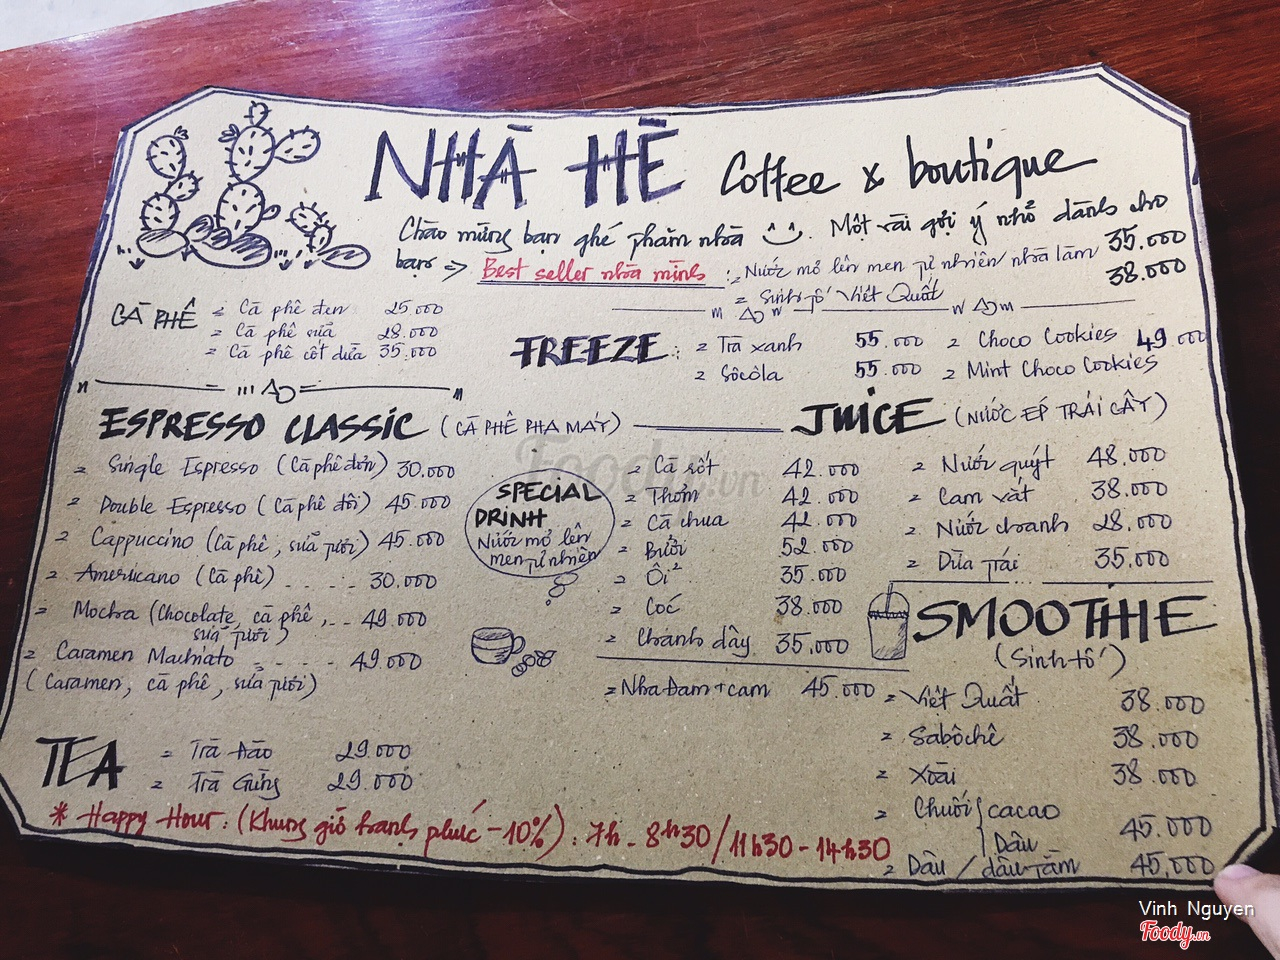 NHÀ HÈ Coffee & boutique
Chào mừng bạn ghé thăm nhà. Một vài gợi ý nhỏ dành cho
bạn => Best seller nhà mình : Nước mơ lên men tự nhiên nhà làm 35.000
= Sinh tố Việt Quất 38.000
CÀ PHÊ = Cà phê đen 25.000
= Cà phê sữa 28.000
= Cà phê cốt dừa 35.000
FREEZE : = Trà xanh 55.000 = Choco Cookies 49.000
= Sôcôla 55.000 = Mint Choco Cookies
ESPRESSO CLASSIC (CÀ PHÊ PHA MÁY)
= Single Espresso (Cà phê đơn) 30.000
= Double Espresso (Cà phê đôi) 45.000
= Cappuccino (Cà phê, sữa tươi) 45.000
= Americano (Cà phê) ..... 30.000
= Mocha (Chocolate, cà phê, .. 49.000
sữa tươi)
= Caramen Machiato = ..... 49.000
(Caramen, cà phê, sữa tươi)
SPECIAL
DRINH
Nước mơ lên
men tự nhiên
JUICE (NƯỚC ÉP TRÁI CÂY)
= Cà rốt 42.000
= Thơm 42.000
= Cà chua 42.000
= Bưởi 52.000
= Ổi 35.000
= Cóc 38.000
= Chanh dây 35.000
= Nha Đam + cam 45.000
= Nước quýt 48.000
= Cam vắt 38.000
= Nước chanh 28.000
= Dừa trái 35.000
SMOOTHIE
(Sinh tố)
= Việt Quất 38.000
= Sabôchê 38.000
= Xoài 38.000
= Chuối { cacao
Dâu 45.000
= Dâu / dâu tằm 45,000
TEA = Trà Đào 29.000
= Trà Gừng 29.000
* Happy Hour: (Khung giờ hạnh phúc -10%) : 7h - 8h30 / 11h30 - 14h30
Foody.vn
Vinh Nguyen
Foody.vn